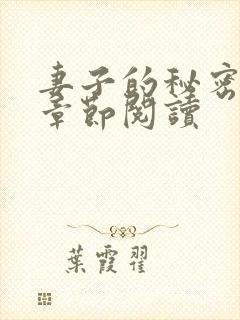 妻子的秘密
章節閱讀
葉霞翟